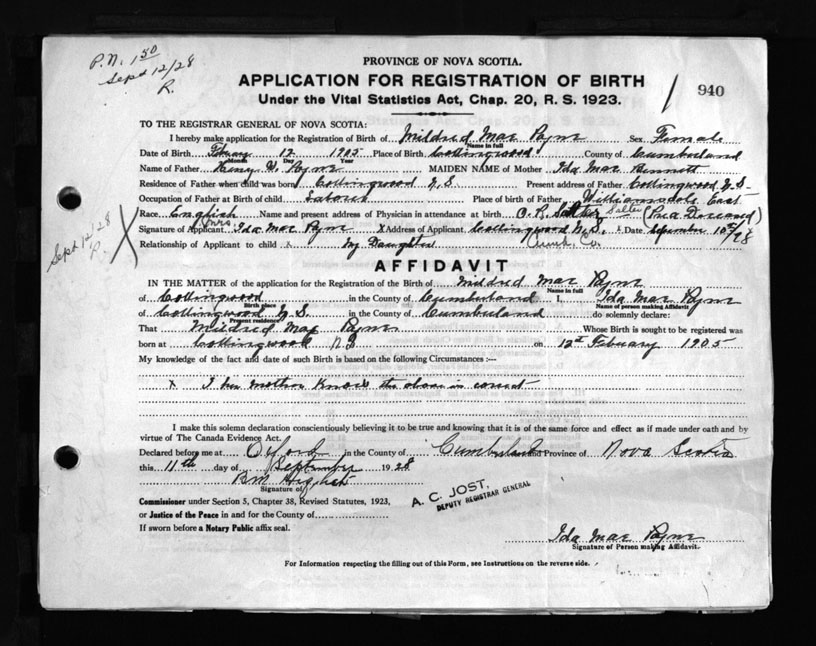 P.N. 150
Sept 12/28
R.
PROVINCE OF NOVA SCOTIA.
APPLICATION FOR REGISTRATION OF BIRTH
Under the Vital Statistics Act, Chap. 20, R. S. 1923.
940
TO THE REGISTRAR GENERAL OF NOVA SCOTIA:
I hereby make application for the Registration of Birth of Mildred Mae Payne Sex Female
Name in full
Date of Birth 12 1905 Place of Birth Collingwood County of Cumberland
Month Day Year
Name of Father Payne MAIDEN NAME of Mother Ida Mae Bennett
Residence of Father when child was born Collingwood N.S. Present address of Father Collingwood N.S.
Occupation of Father at Birth of child Labour Place of birth of Father Williamsdale East
Race English Name and present address of Physician in attendance at birth Salter (Deceased)
Signature of Applicant Mrs Ida Mae Payne X Address of Applicant Collingwood N.S. Date September 10th/28
Cumb. Co.
Relationship of Applicant to child My Daughter
Sept 12/28
R.
X
AFFIDAVIT
IN THE MATTER of the application for the Registration of the Birth of Mildred Mae Payne
Name in full
of Collingwood in the County of Cumberland I, Ida Mae Payne
Birth place Name of person making Affidavit
of Collingwood N.S. in the County of Cumberland do solemnly declare:
Present residence
That Mildred Mae Payne Whose Birth is sought to be registered was
born at Collingwood N.S. on 12th February 1905
My knowledge of the fact and date of such Birth is based on the following Circumstances :—
x I her mother Know the above is correct
I make this solemn declaration conscientiously believing it to be true and knowing that it is of the same force and effect as if made under oath and by
virtue of The Canada Evidence Act.
Declared before me at Oxford in the County of Cumberland and Province of Nova Scotia
this 11th day of September 1928
Signature of
Commissioner under Section 5, Chapter 38, Revised Statutes, 1923,
A. C. JOST,
DEPUTY REGISTRAR GENERAL
or Justice of the Peace in and for the County of
If sworn before a Notary Public affix seal.
Ida Mae Payne
Signature of Person making Affidavit.
For Information respecting the filling out of this Form, see Instructions on the reverse side.